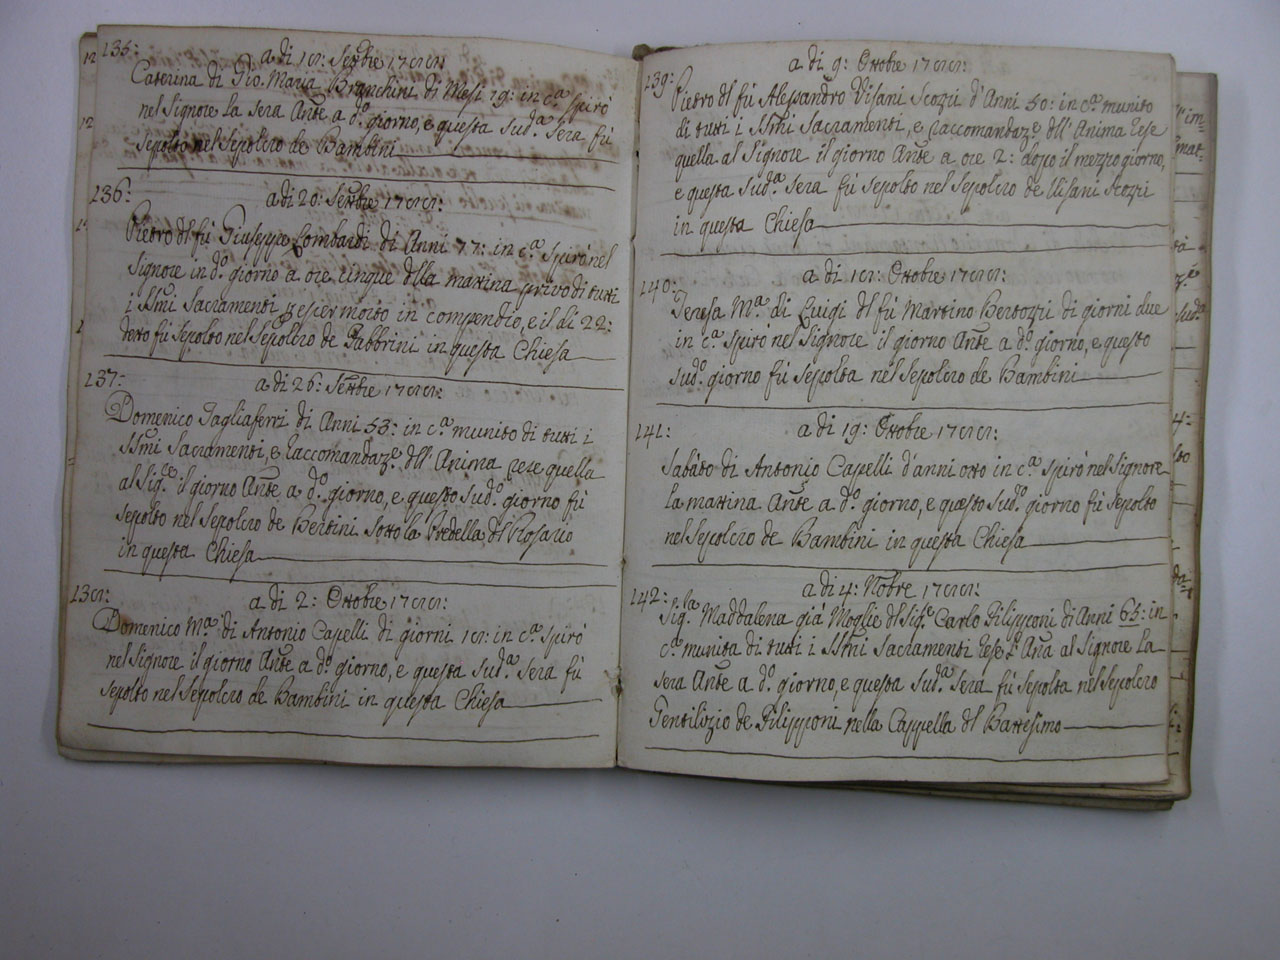 135:
a di 18: Settbre 1788:
Caterina di Gio. Maria Branchini di Mesi 19: in Cª spirò
nel Signore la sera Ante a dº giorno, e questa sudª sera fù
sepolta nel Sepolcro de Bambini
136:
a di 20: Settbre 1788:
Pietro dl fù Giuseppe Lombardi di Anni 77: in Cª spirò nel
Signore in dº giorno a ore cinque dlla mattina privo di tutti
i SSmi Sacramenti p esser morto in compendio, e il di 22:
detto fù sepolto nel Sepolcro de Fabbrini in questa Chiesa
137:
a di 26: Settbre 1788:
Domenico Tagliaferri di Anni 53: in Cª munito di tutti i
SSmi Sacramenti, e raccomandazе. dll'Anima rese quella
al Sigre il giorno Ante a dº giorno, e questo sudº giorno fù
sepolto nel Sepolcro de Bertini sotto la Predella dl Rosario
in questa Chiesa
138:
a di 2: Ottobre 1788:
Domenico Mª di Antonio Capelli di giorni 18: in Cª spirò
nel Signore il giorno Ante a dº giorno, e questa sudª sera fù
sepolto nel Sepolcro de Bambini in questa Chiesa
139:
a di 9: Ottobre 1788:
Pietro dl fù Alessandro Visani Scozzi d'Anni 50: in Cª munito
di tutti i SSmi Sacramenti, e raccomandaze dll'Anima rese
quella al Signore il giorno Ante a ore 2: dopo il mezzo giorno,
e questa sudª sera fù sepolto nel Sepolcro de Visani Scozzi
in questa Chiesa
140:
a di 18: Ottobre 1788:
Teresa Mª di Luigi dl fù Martino Bertozzi di giorni due
in Cª spirò nel Signore il giorno Ante a dº giorno, e questo
sudº giorno fù sepolta nel Sepolcro de Bambini
141:
a di 19: Ottobre 1788:
Sabato di Antonio Capelli d'anni otto in Cª spirò nel Signore
la mattina Ante a dº giorno, e questo sudº giorno fù sepolto
nel Sepolcro de Bambini in questa Chiesa
142:
a di 4: Nobre 1788:
Sigra Maddalena già Moglie dl Sigre Carlo Filipponi di Anni 65: in
Cª munita di tutti i SSmi Sacramenti rese l'Ana al Signore la
sera Ante a dº giorno, e questa sudª sera fù sepolta nel Sepolcro
Gentilizio de Filipponi nella Cappella dl Battesimo